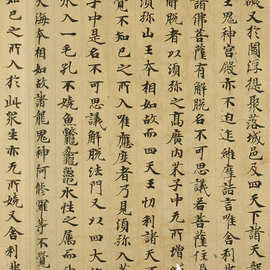 礙又於閻浮提聚落城邑及四天下諸
王鬼神宮殿亦不迫迮維摩詰言唯舍利
諸佛菩薩有解脫名不可思議若菩薩住
解脫者以須弥山之高廣內芥子中无所增
須弥山王本相如故而四天王忉利諸天
覺不知己之所入唯應度者乃見須弥入
子中是名不可思議解脫法門又以四
水入一毛孔不嬈魚鼈黿鼉水性之属而
大海本相如故諸龍鬼神阿脩羅等不覺
知己之所入於此衆生亦无所嬈又舍利弗